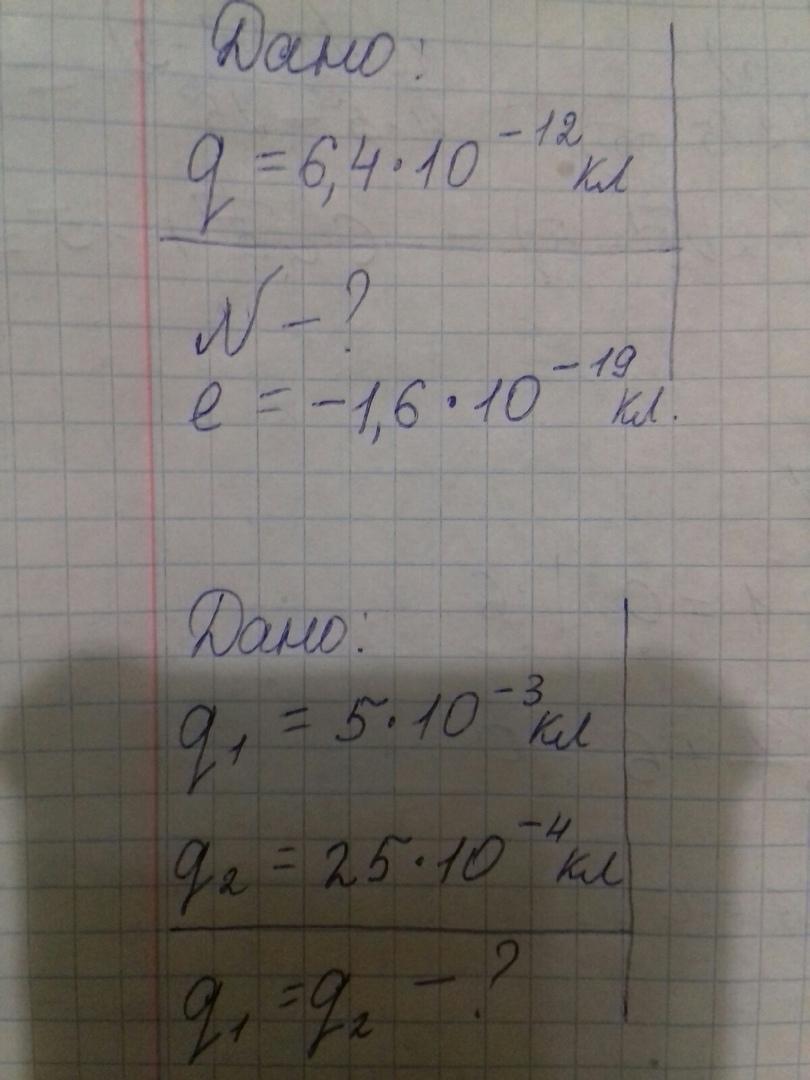 Дано:
q = 6,4 · 10⁻¹² кл
N – ?
e = –1,6 · 10⁻¹⁹ кл.
Дано:
q₁ = 5 · 10⁻³ кл
q₂ = 25 · 10⁻⁴ кл
q₁ = q₂ – ?